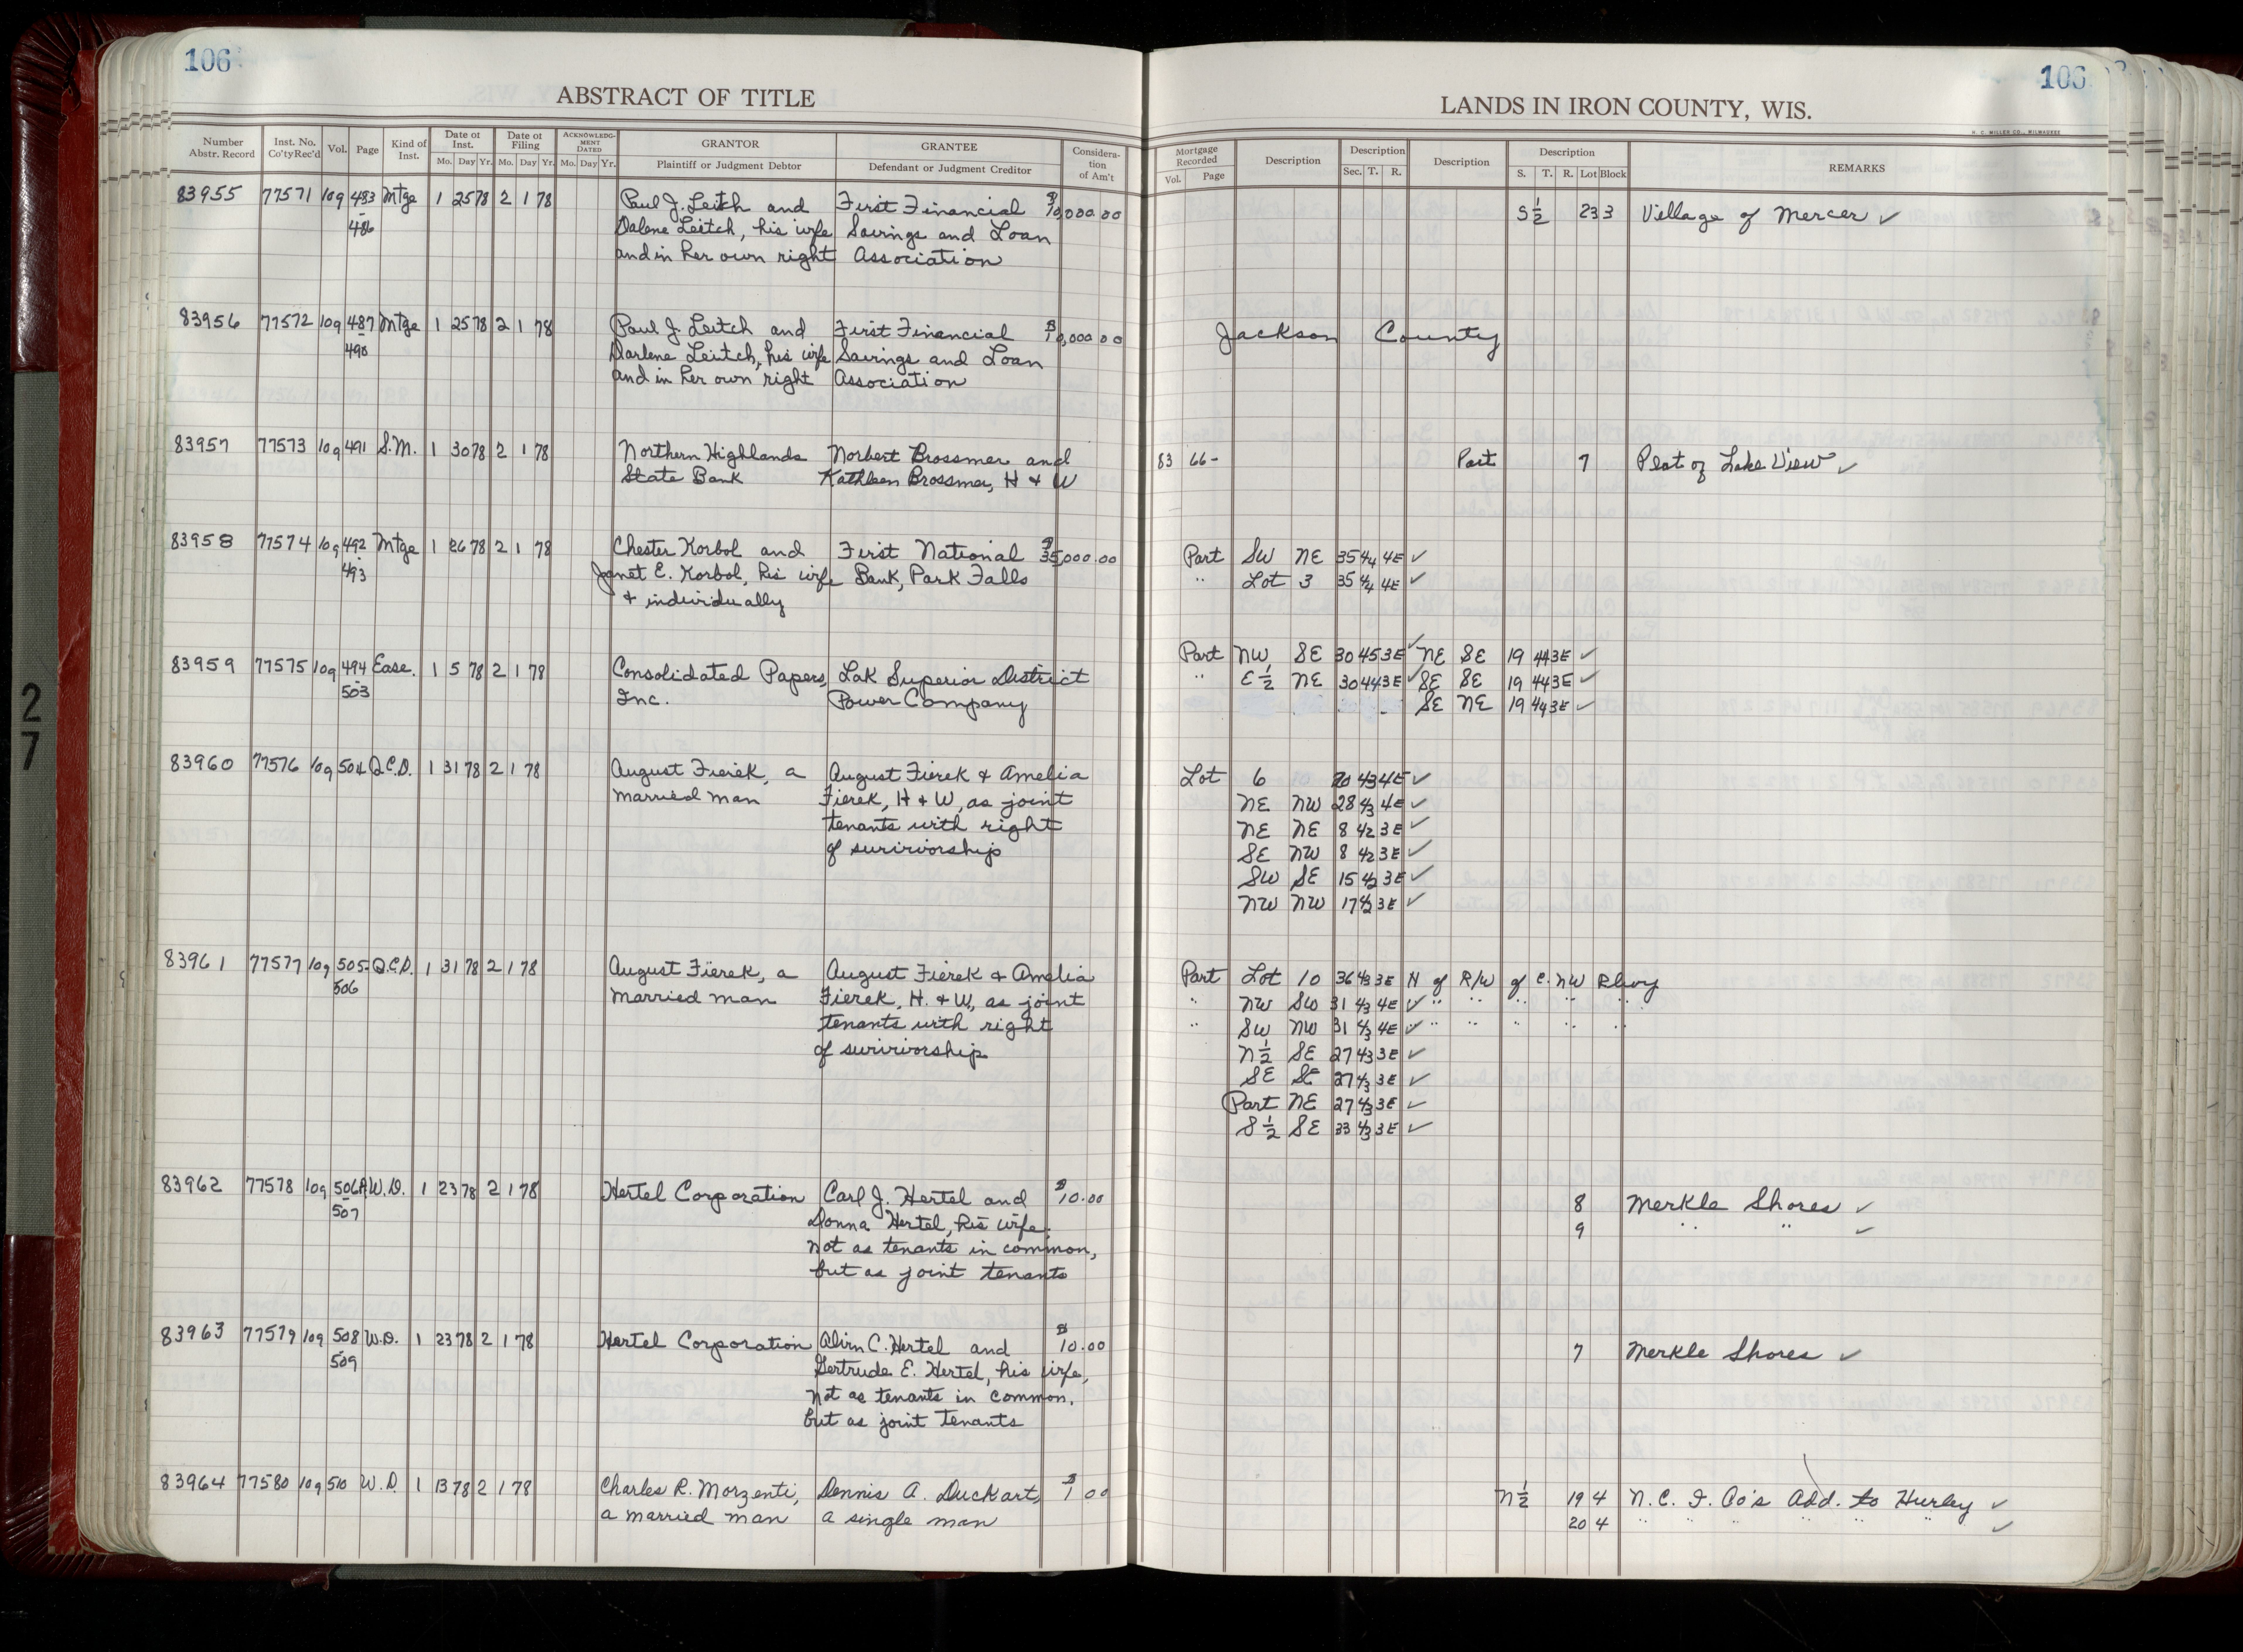 106
106
ABSTRACT OF TITLE
LANDS IN IRON COUNTY, WIS.
H. C. MILLER CO., MILWAUKEE
Number Abstr. Record | Inst. No. Co'ty Rec'd | Vol. | Page | Kind of Inst. | Date of Inst. Mo. Day Yr. | Date of Filing Mo. Day Yr. | ACKNOWLEDGMENT DATED Mo. Day Yr. | GRANTOR Plaintiff or Judgment Debtor | GRANTEE Defendant or Judgment Creditor | Consideration of Am't | Mortgage Recorded Vol. Page | Description | Description Sec. T. R. | Description | Description S. T. R. Lot Block | REMARKS
83955 77571 109 483 Mtge 1 25 78 2 1 78 Paul J. Leitch and First Financial $10,000.00 S½ 23 3 Village of Mercer ✓
- 486 Dalene Leitch, his wife Savings and Loan
and in her own right Association
83956 77572 109 487 Mtge 1 25 78 2 1 78 Paul J. Leitch and First Financial $10,000.00 Jackson County
- 490 Darlene Leitch, his wife Savings and Loan
and in her own right Association
83957 77573 109 491 S.M. 1 30 78 2 1 78 Northern Highlands Norbert Brossmer and 83 66- Part 7 Plat of Lake View ✓
State Bank Kathleen Brossmer, H & W
83958 77574 109 492 Mtge 1 26 78 2 1 78 Chester Korbol and First National $35,000.00 Part SW NE 35 44 4E ✓
- 493 Janet E. Korbol, his wife Bank, Park Falls " Lot 3 35 44 4E ✓
& individually
83959 77575 109 494 Ease. 1 5 78 2 1 78 Consolidated Papers, Lak Superior District Part NW SE 30 45 3E ✓ NE SE 19 44 3E ✓
- 503 Inc. Power Company " E½ NE 30 44 3E ✓ SE SE 19 44 3E ✓
SE NE 19 44 3E ✓
83960 77576 109 504 Q.C.D. 1 31 78 2 1 78 August Fierek, a August Fierek & Amelia Lot 6 20 43 4E ✓
married man Fierek, H & W, as joint NE NW 28 43 4E ✓
tenants with right NE NE 8 42 3E ✓
of survivorship SE NW 8 42 3E ✓
SW SE 15 42 3E ✓
NW NW 17 42 3E ✓
83961 77577 109 505- Q.C.D. 1 31 78 2 1 78 August Fierek, a August Fierek & Amelia Part Lot 10 36 43 3E H of R/W of C. NW Rlwy
506 married man Fierek, H. & W, as joint " NW SW 31 43 4E ✓ " " " " "
tenants with right " SW NW 31 43 4E ✓ " " " " "
of survivorship N½ SE 27 43 3E ✓
SE SE 27 43 3E ✓
Part NE 27 43 3E ✓
S½ SE 33 43 3E ✓
83962 77578 109 506A W.D. 1 23 78 2 1 78 Hertel Corporation Carl J. Hertel and $10.00 8 Merkle Shores ✓
- 507 Donna Hertel, his wife, 9 " " ✓
not as tenants in common,
but as joint tenants
83963 77579 109 508 W.D. 1 23 78 2 1 78 Hertel Corporation Alvin C. Hertel and $10.00 7 Merkle Shores ✓
- 509 Gertrude E. Hertel, his wife,
not as tenants in common,
but as joint tenants
83964 77580 109 510 W.D 1 13 78 2 1 78 Charles R. Morzenti, Dennis A. Duckart, $1 00 N½ 19 4 N.C. I. Co's Add. to Hurley ✓
a married man a single man 20 4 " " " " " " ✓
27